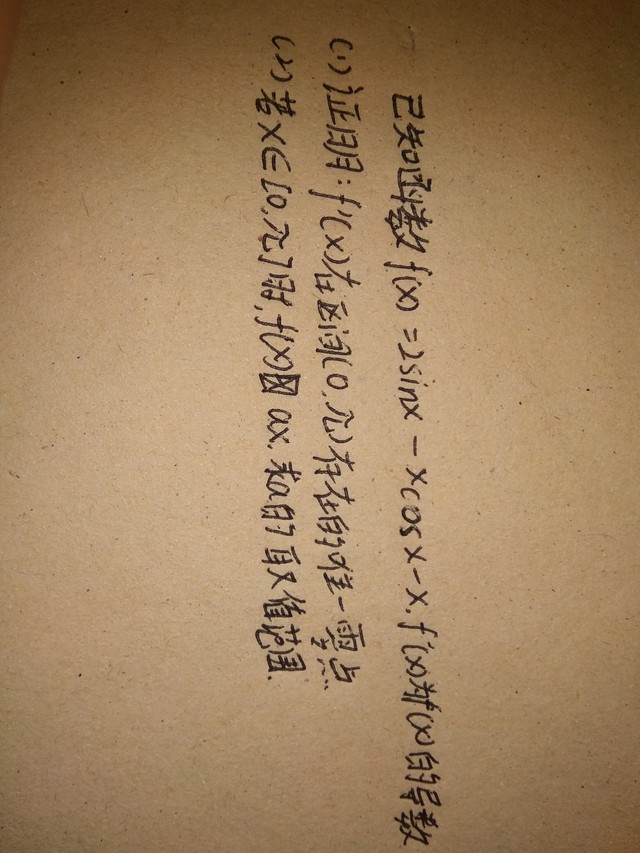 已知函数f(x)=2sinx-xcosx-x.f'(x)为f(x)的导数
(1)证明:f'(x)在区间(0,π)存在的唯一零点.
(2)若x∈[0,π]时,f(x) ax.求a的取值范围.